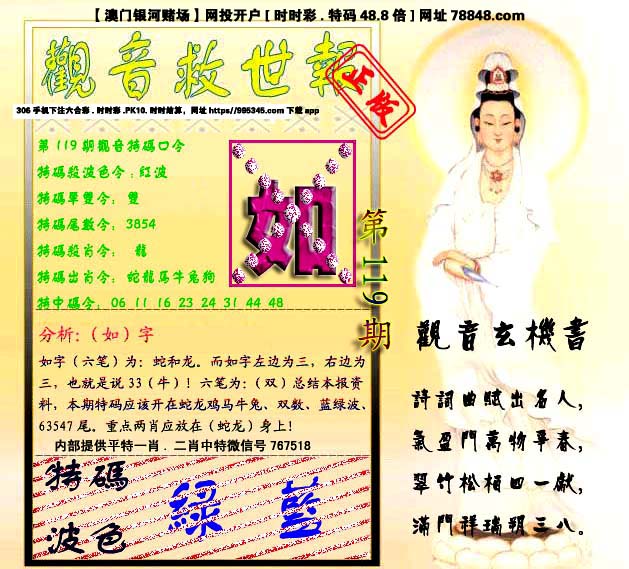 【 澳门银河赌场 】网投开户 [ 时时彩 . 特码 48.8 倍 ] 网址 78848.com
觀音救世報
正传
306 手机下注六合彩 . 时时彩 .PK10. 时时结算，网址 https//995345.com 下载 app
第 119 期觀音特碼口令
特碼殺波色令 : 紅波
特碼單雙令： 雙
特碼尾數令： 3854
特碼殺肖令： 龍
特碼出肖令： 蛇龍馬牛兔狗
特中碼令： 06 11 16 23 24 31 44 48
如
第 119 期
分析:（如）字
如字（六笔）为：蛇和龙。而如字左边为三，右边为
三，也就是说 33（牛）！六笔为：（双）总结本报资
料，本期特码应该开在蛇龙鸡马牛兔、双数、蓝绿波、
63547 尾。重点两肖应放在（蛇龙）身上！
内部提供平特一肖 . 二肖中特微信号 767518
特碼
波色
綠 藍
觀音玄機書
詩詞曲賦出名人，
氣盈門萬物爭春，
翠竹松栢四一獻，
滿門祥瑞朔三八。